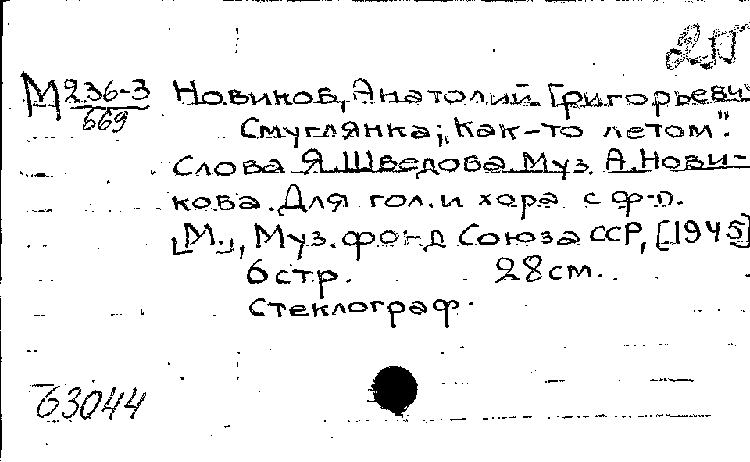 255
М 236-3 Новиков, Анатолий Григорьевич
669
Смуглянка; "Как-то летом".
Слова Я.Шведова. Муз. А.Нови-
кова. Для гол. и хора с ф-п.
[М.], Муз. фонд Союза ССР, [1945]
6 стр. 28 см.
Стеклограф.
63044